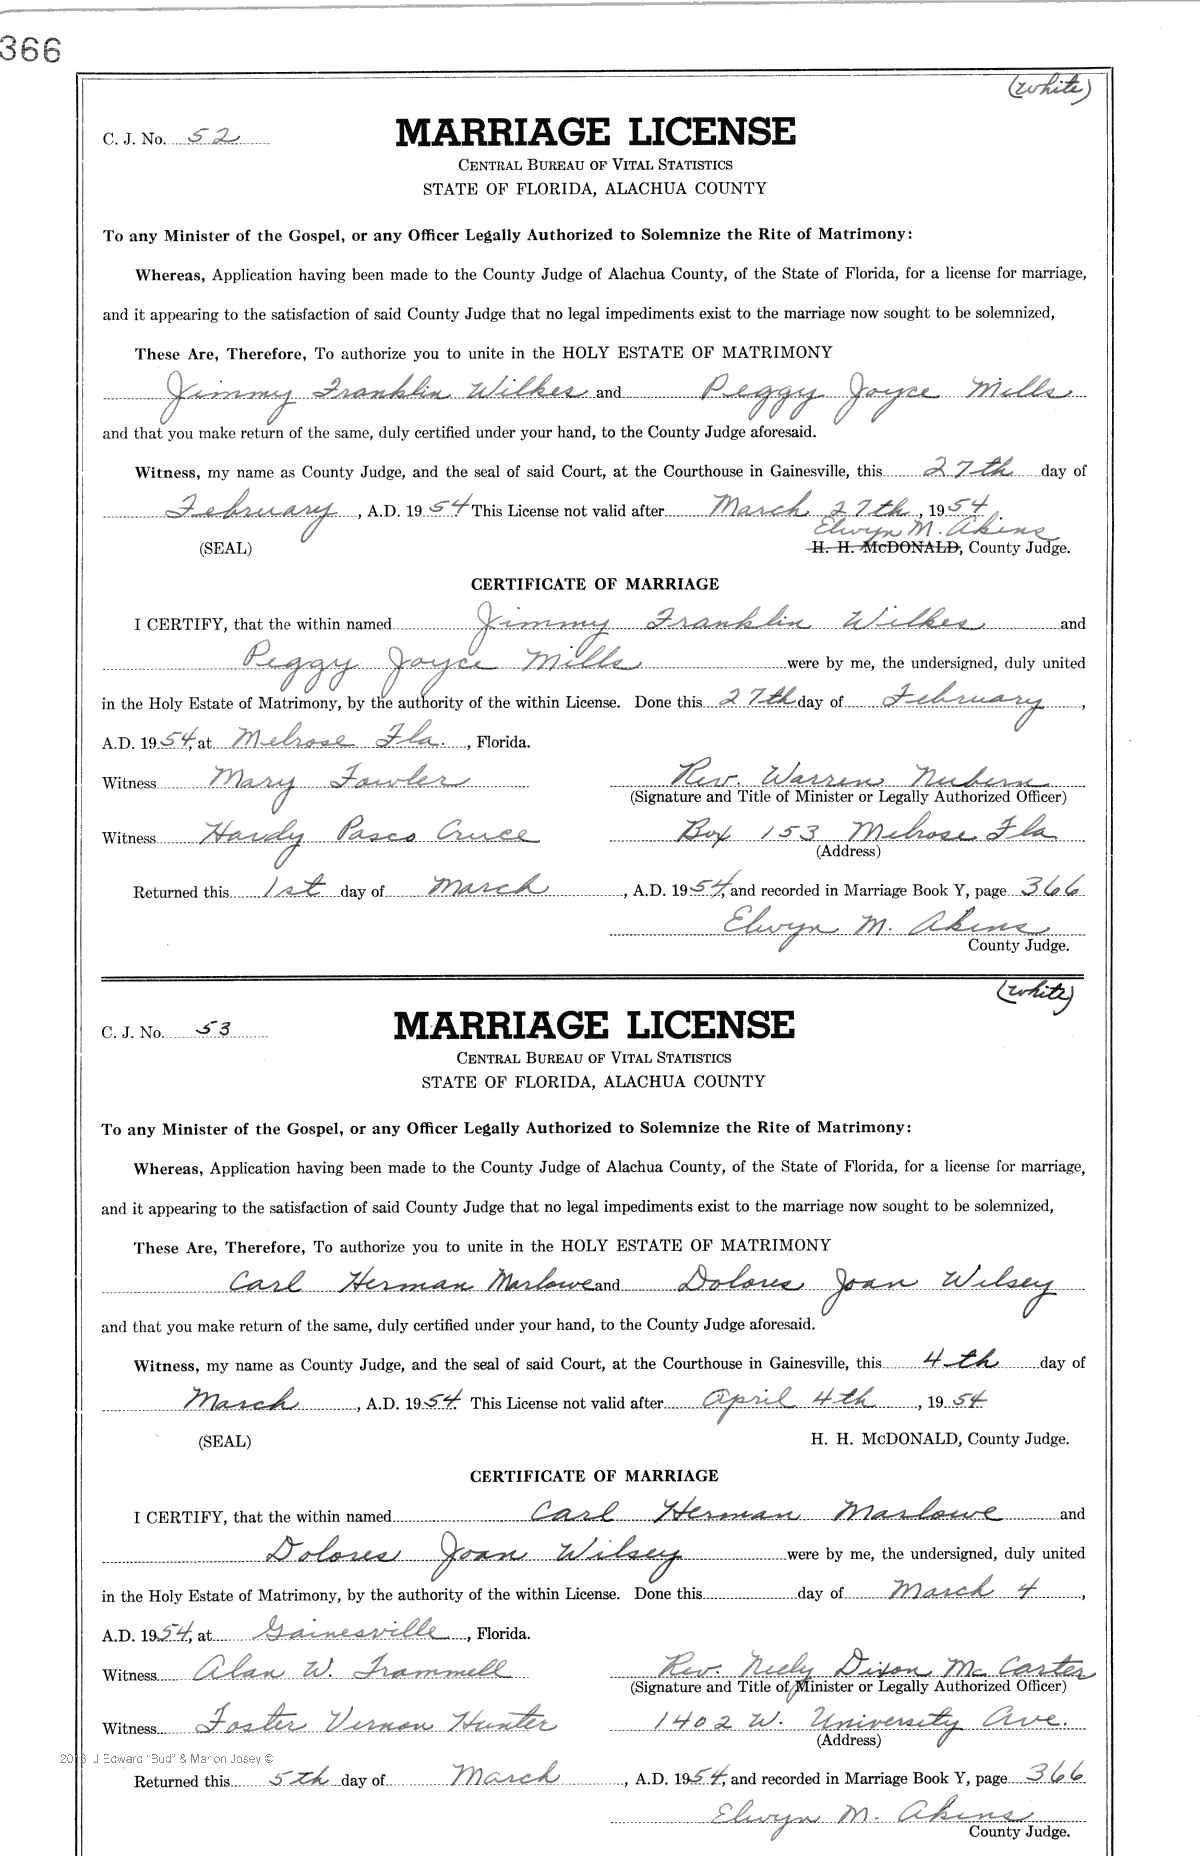 366
(white)
C. J. No. 52
MARRIAGE LICENSE
CENTRAL BUREAU OF VITAL STATISTICS
STATE OF FLORIDA, ALACHUA COUNTY
To any Minister of the Gospel, or any Officer Legally Authorized to Solemnize the Rite of Matrimony:
Whereas, Application having been made to the County Judge of Alachua County, of the State of Florida, for a license for marriage,
and it appearing to the satisfaction of said County Judge that no legal impediments exist to the marriage now sought to be solemnized,
These Are, Therefore, To authorize you to unite in the HOLY ESTATE OF MATRIMONY
Jimmy Franklin Wilkes and Peggy Joyce Mills
and that you make return of the same, duly certified under your hand, to the County Judge aforesaid.
Witness, my name as County Judge, and the seal of said Court, at the Courthouse in Gainesville, this 27th day of
February, A.D. 1954 This License not valid after March 27th, 1954.
Elwyn M. Akins
(SEAL) H. H. McDONALD, County Judge.
CERTIFICATE OF MARRIAGE
I CERTIFY, that the within named Jimmy Franklin Wilkes and
Peggy Joyce Mills were by me, the undersigned, duly united
in the Holy Estate of Matrimony, by the authority of the within License. Done this 27th day of February,
A.D. 1954, at Melrose Fla., Florida.
Witness Mary Fowler Rev. Warren Nubern
(Signature and Title of Minister or Legally Authorized Officer)
Witness Hardy Pasco Cruce Box 153 Melrose Fla
(Address)
Returned this 1st day of March, A.D. 1954, and recorded in Marriage Book Y, page 366
Elwyn M. Akins
County Judge.
(white)
C. J. No. 53
MARRIAGE LICENSE
CENTRAL BUREAU OF VITAL STATISTICS
STATE OF FLORIDA, ALACHUA COUNTY
To any Minister of the Gospel, or any Officer Legally Authorized to Solemnize the Rite of Matrimony:
Whereas, Application having been made to the County Judge of Alachua County, of the State of Florida, for a license for marriage,
and it appearing to the satisfaction of said County Judge that no legal impediments exist to the marriage now sought to be solemnized,
These Are, Therefore, To authorize you to unite in the HOLY ESTATE OF MATRIMONY
Carl Herman Marlowe and Dolores Joan Wilsey
and that you make return of the same, duly certified under your hand, to the County Judge aforesaid.
Witness, my name as County Judge, and the seal of said Court, at the Courthouse in Gainesville, this 4th day of
March, A.D. 1954. This License not valid after April 4th, 1954
(SEAL) H. H. McDONALD, County Judge.
CERTIFICATE OF MARRIAGE
I CERTIFY, that the within named Carl Herman Marlowe and
Dolores Joan Wilsey were by me, the undersigned, duly united
in the Holy Estate of Matrimony, by the authority of the within License. Done this day of March 4,
A.D. 1954, at Gainesville, Florida.
Witness Alan W. Trammell Rev. Neely Dixon McCarter
(Signature and Title of Minister or Legally Authorized Officer)
Witness Foster Vernon Hunter 1402 W. University Ave.
(Address)
J Edward "Bud" & Marion Josey ©
Returned this 5th day of March, A.D. 1954, and recorded in Marriage Book Y, page 366
Elwyn M. Akins
County Judge.